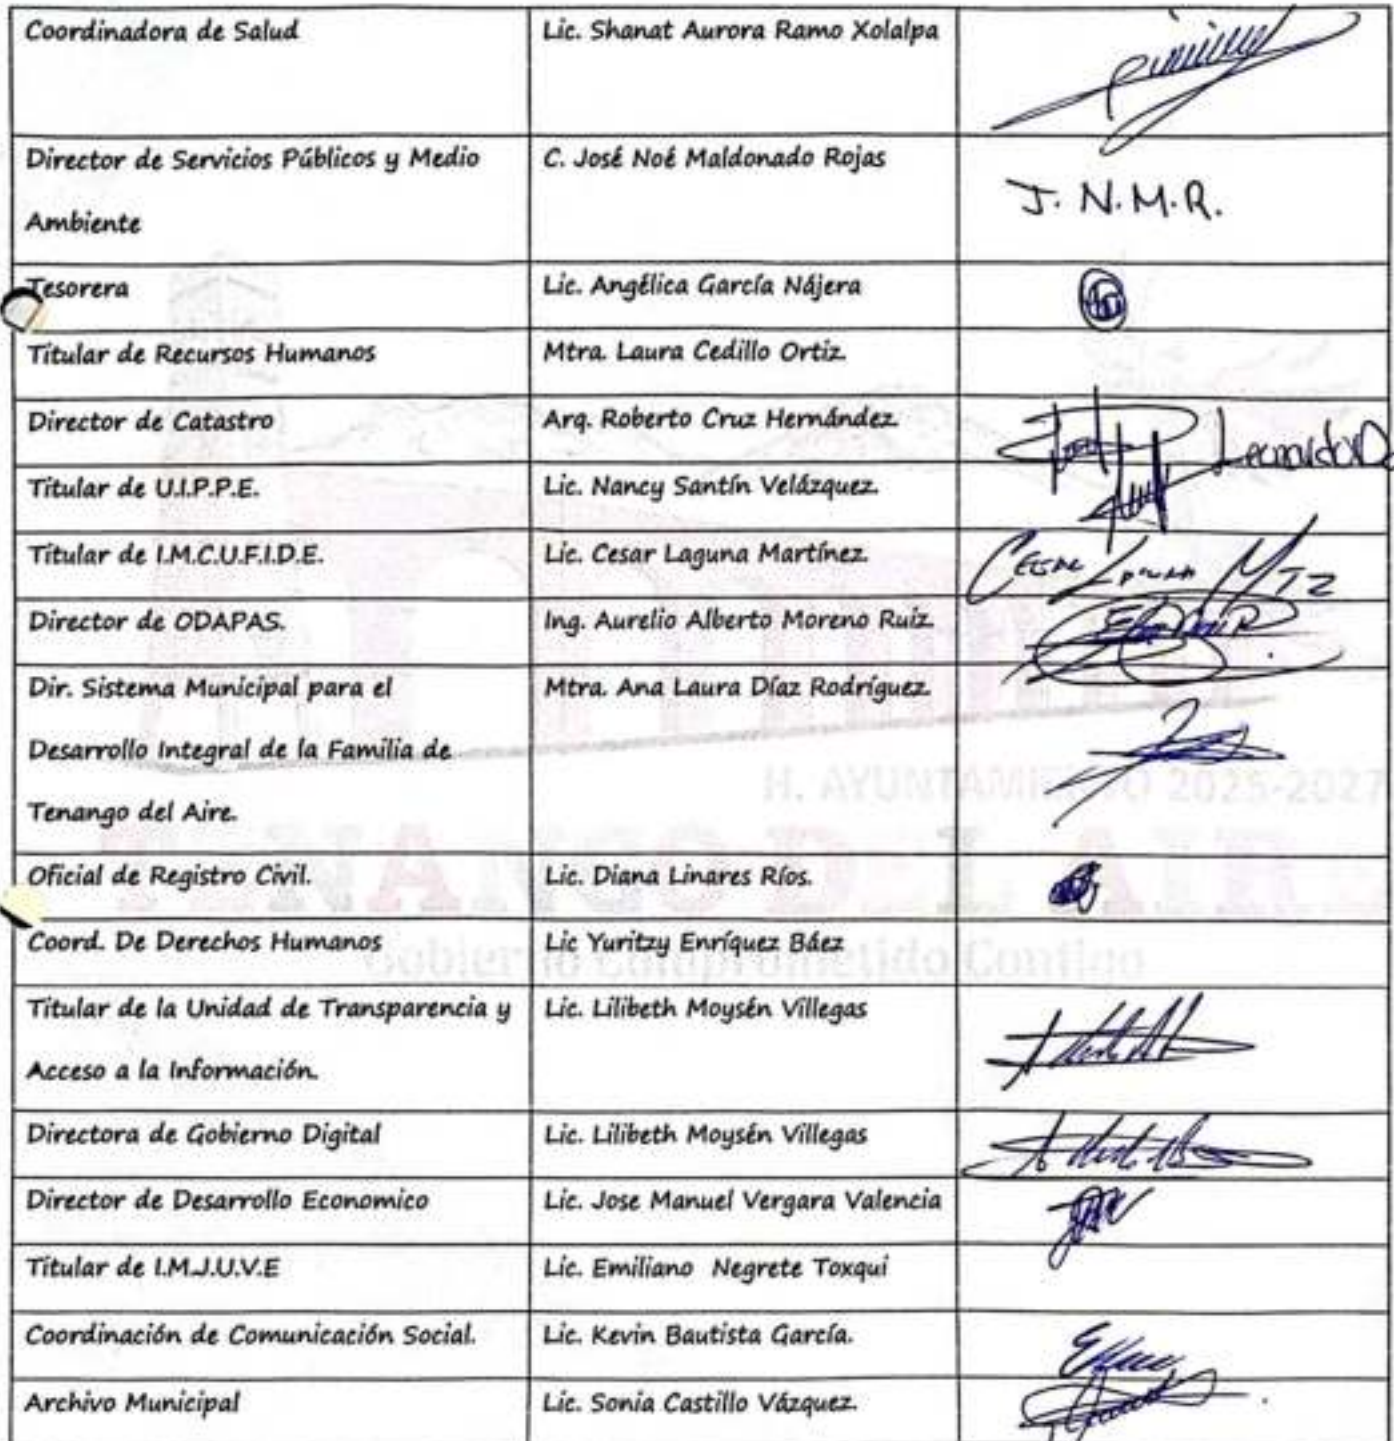 Coordinadora de Salud
Lic. Shanat Aurora Ramo Xolalpa
Director de Servicios Públicos y Medio
Ambiente
C. José Noé Maldonado Rojas
J. N.M.R.
Tesorera
Lic. Angélica García Nájera
Titular de Recursos Humanos
Mtra. Laura Cedillo Ortiz.
Director de Catastro
Arq. Roberto Cruz Hernández.
Titular de U.I.P.P.E.
Lic. Nancy Santín Velázquez.
Titular de I.M.C.U.F.I.D.E.
Lic. Cesar Laguna Martínez.
Cesar Laguna Mtz
Director de ODAPAS.
Ing. Aurelio Alberto Moreno Ruiz.
Dir. Sistema Municipal para el
Desarrollo Integral de la Familia de
Tenango del Aire.
Mtra. Ana Laura Díaz Rodríguez.
H. AYUNTAMIENTO 2025-2027
TENANGO DEL AIRE
Oficial de Registro Civil.
Lic. Diana Linares Ríos.
Coord. De Derechos Humanos
Lic Yuritzy Enríquez Báez
Gobierno Comprometido Contigo
Titular de la Unidad de Transparencia y
Acceso a la Información.
Lic. Lilibeth Moysén Villegas
Directora de Gobierno Digital
Lic. Lilibeth Moysén Villegas
Director de Desarrollo Economico
Lic. Jose Manuel Vergara Valencia
Titular de I.M.J.U.V.E
Lic. Emiliano Negrete Toxqui
Coordinación de Comunicación Social.
Lic. Kevin Bautista García.
Archivo Municipal
Lic. Sonia Castillo Vázquez.